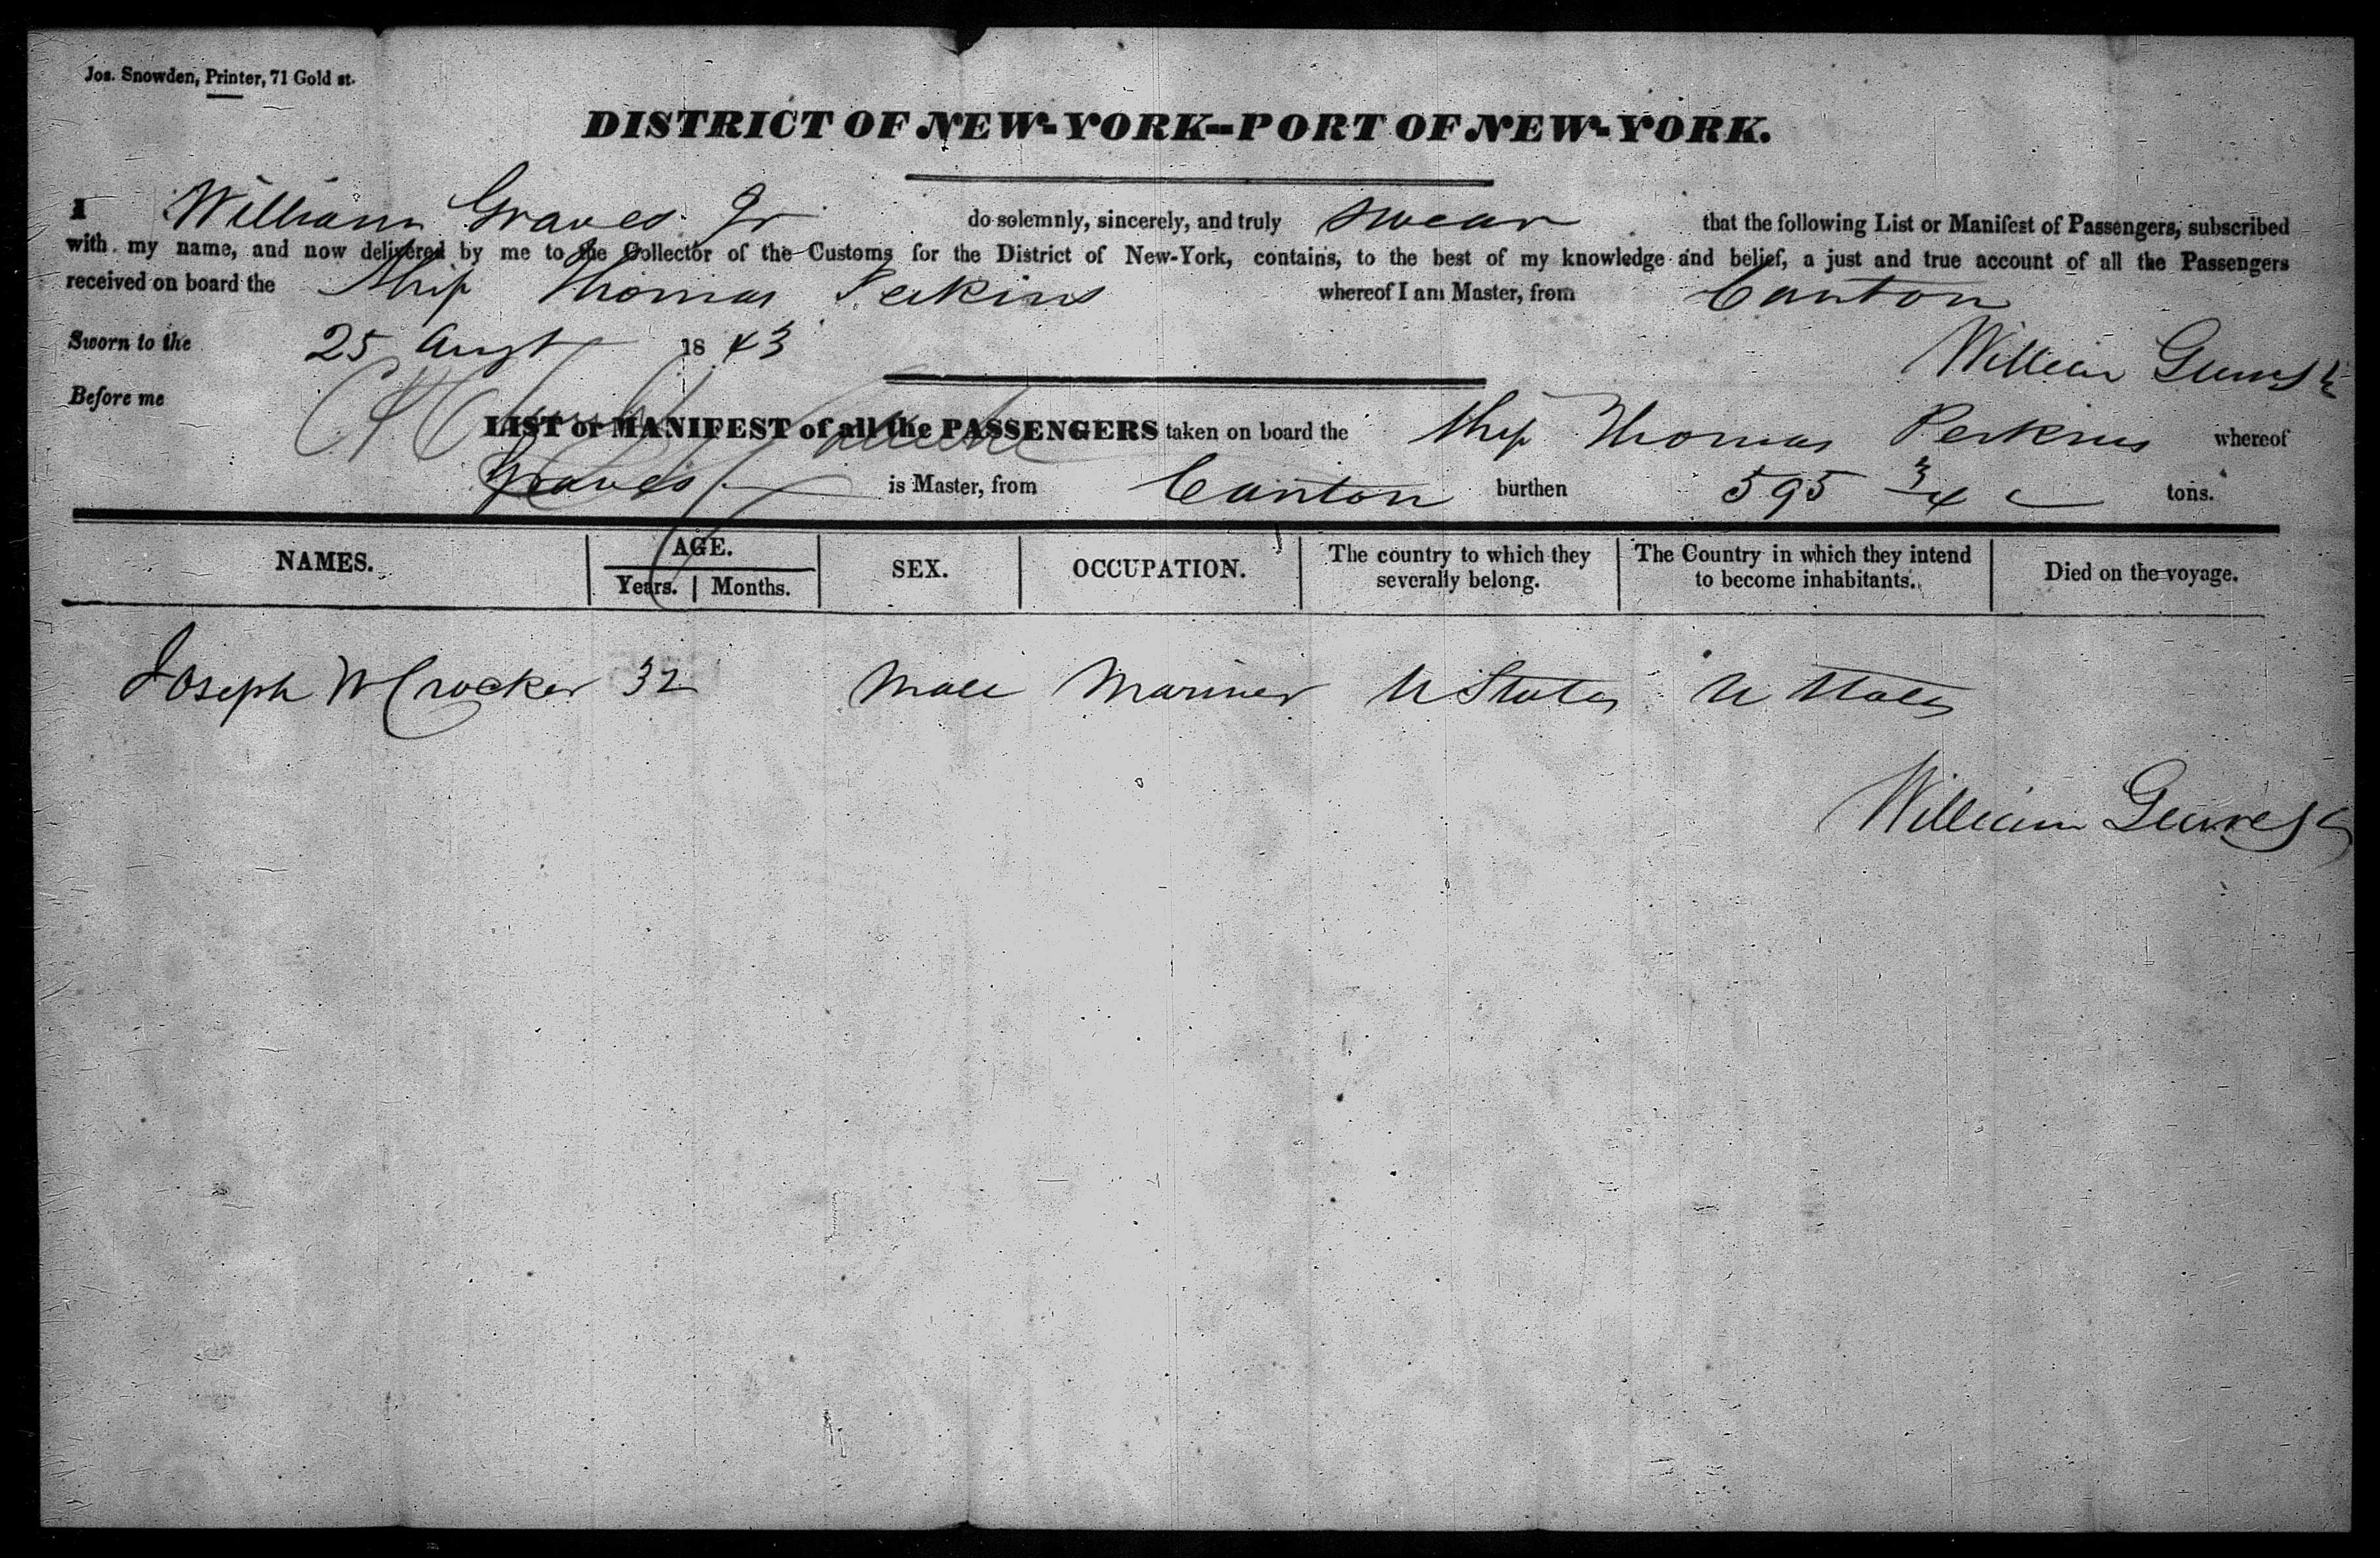 Jos. Snowden, Printer, 71 Gold st.
DISTRICT OF NEW-YORK--PORT OF NEW-YORK.
I William Graves Jr do solemnly, sincerely, and truly swear that the following List or Manifest of Passengers, subscribed
with my name, and now delivered by me to the Collector of the Customs for the District of New-York, contains, to the best of my knowledge and belief, a just and true account of all the Passengers
received on board the Ship Thomas Perkins whereof I am Master, from Canton
Sworn to the 25 Augt 1843 William Graves Jr
Before me
LIST or MANIFEST of all the PASSENGERS taken on board the Ship Thomas Perkins whereof
Graves is Master, from Canton burthen 595 3/4 tons.
NAMES. AGE. Years. Months. SEX. OCCUPATION. The country to which they severally belong. The Country in which they intend to become inhabitants. Died on the voyage.
Joseph W Crocker 32 Male Mariner U States U States
William Graves Jr